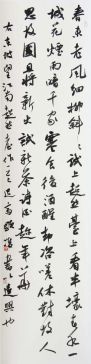 春未老風細柳斜斜試上超然臺上看半壕春水一
城花烟雨暗千家寒食後酒醒却咨嗟休對故人
思故國且將新火試新茶詩酒趁年華
右東坡望江南超然臺作 書